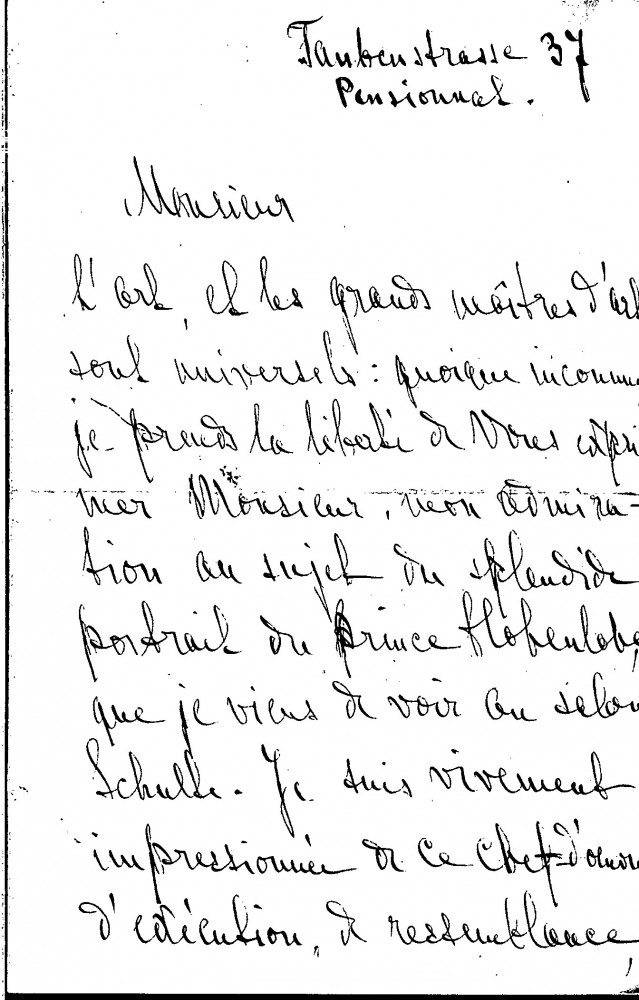 Taubenstrasse 37
Pensionnat.
Monsieur
L'art, et les grands maîtres d'art
sont universels: quoique inconnue
je prends la liberté de Vous expri
mer Monsieur, mon admira-
tion au sujet du splendide
portrait du prince Hohenlohe
que je viens de voir au salon
Schulte. Je suis vivement
impressionnée de ce chef-d'oeuvre
d'exécution, de ressemblance,